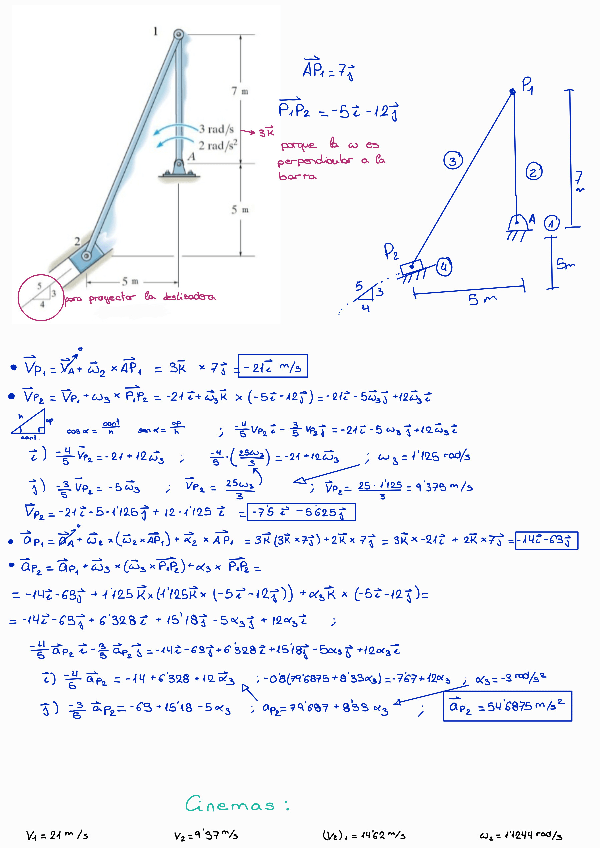 1
7 m
3 rad/s → 3k⃗
2 rad/s²
A
5 m
2
5 m
5
3
4
para proyectar la deslizadera
AP₁ = 7j⃗
P₁P₂ = -5i⃗ - 12j⃗
porque la ω es
perpendicular a la
barra
P₁
③
②
7 m
A ①
P₂
④
5m
5
3
4
5 m
• V⃗P₁ = V⃗A⁰ + ω⃗₂ × AP₁ = 3k⃗ × 7j⃗ = -21i⃗ m/s
• V⃗P₂ = V⃗P₁ + ω₃ × P₁P₂ = -21i⃗ + ω⃗₃k⃗ × (-5i⃗ - 12j⃗) = -21i⃗ - 5ω₃j⃗ + 12ω₃i⃗
h
op
cont
cos α = cont/h sen α = op/h ; -4/5 VP₂ i⃗ - 3/5 VP₂ j⃗ = -21i⃗ - 5ω₃j⃗ + 12ω₃i⃗
i⃗) -4/5 V⃗P₂ = -21 + 12ω⃗₃ ; -4/5 · (25ω₃/3) = -21 + 12ω⃗₃ ; ω₃ = 1'125 rad/s
j⃗) -3/5 V⃗P₂ = -5ω⃗₃ ; V⃗P₂ = 25ω₃/3 ; V⃗P₂ = 25·1'125/3 = 9'375 m/s
V⃗P₂ = -21i⃗ - 5·1'125j⃗ + 12·1'125i⃗ = -7'5i⃗ - 5'625j⃗
• a⃗P₁ = a⃗A⁰ + ω⃗₂ × (ω⃗₂ × AP₁) + α⃗₂ × AP₁ = 3k⃗(3k⃗ × 7j⃗) + 2k⃗ × 7j⃗ = 3k⃗ × -21i⃗ + 2k⃗ × 7j⃗ = -14i⃗ - 63j⃗
• a⃗P₂ = a⃗P₁ + ω⃗₃ × (ω₃ × P₁P₂) + α₃ × P₁P₂ =
= -14i⃗ - 63j⃗ + 1'125k⃗ × (1'125k⃗ × (-5i⃗ - 12j⃗)) + α₃k⃗ × (-5i⃗ - 12j⃗) =
= -14i⃗ - 63j⃗ + 6'328i⃗ + 15'18j⃗ - 5α₃j⃗ + 12α₃i⃗ ;
-4/5 a⃗P₂ i⃗ - 3/5 a⃗P₂ j⃗ = -14i⃗ - 63j⃗ + 6'328i⃗ + 15'18j⃗ - 5α₃j⃗ + 12α₃i⃗
i⃗) -4/5 a⃗P₂ = -14 + 6'328 + 12α₃ ; -0'8(79'6875 + 8'33α₃) = -7'67 + 12α₃ ; α₃ = -3 rad/s²
j⃗) -3/5 a⃗P₂ = -63 + 15'18 - 5α₃ ; aP₂ = 79'687 + 8'33α₃ ; a⃗P₂ = 54'6875 m/s²
Cinemas:
V₁ = 21 m/s V₂ = 9'37 m/s (V₂)₁ = 14'62 m/s ω₃ = 1'1244 rad/s